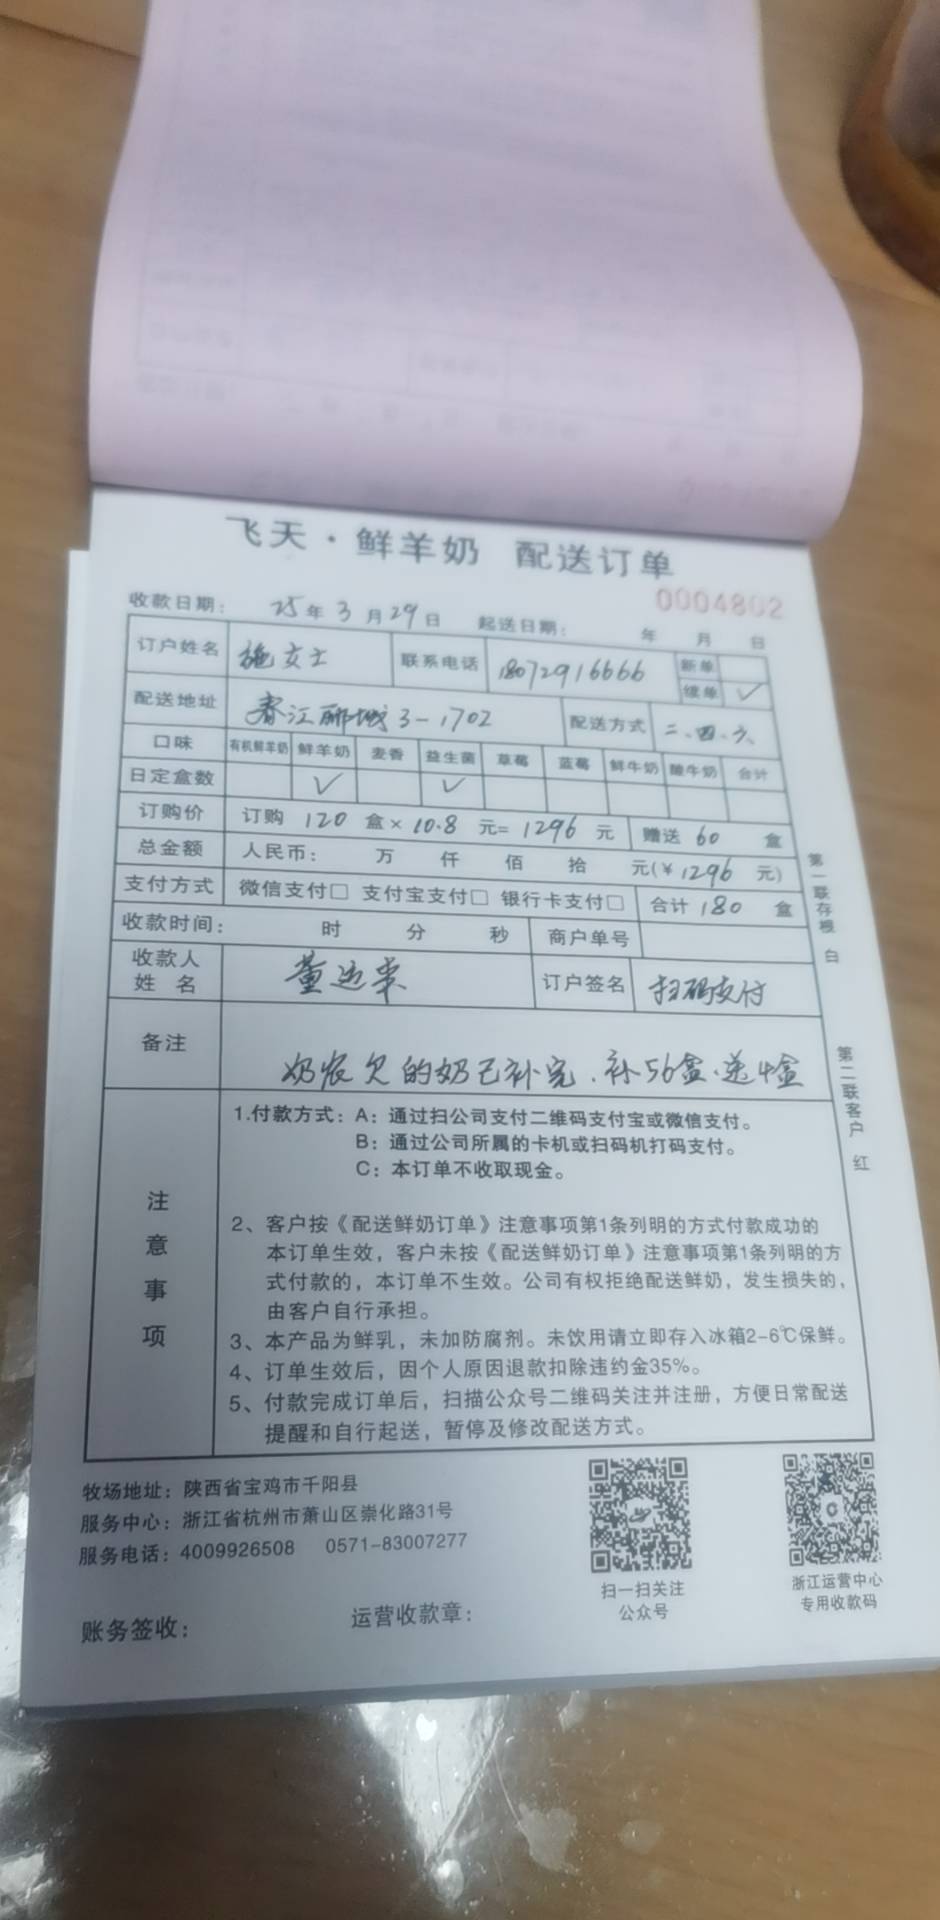 飞天·鲜羊奶 配送订单
0004802
收款日期： 25年3月29日 起送日期： 年 月 日
订户姓名 施女士 联系电话 18072916666 新单
续单 ✓
配送地址 春江郦城3-1702 配送方式 二、四、六、
口味 有机鲜羊奶 鲜羊奶 麦香 益生菌 草莓 蓝莓 鲜牛奶 酸牛奶 合计
日定盒数 ✓ ✓
订购价 订购 120 盒× 10.8 元= 1296 元 赠送 60 盒
总金额 人民币： 万 仟 佰 拾 元(￥1296 元)
支付方式 微信支付□ 支付宝支付□ 银行卡支付□ 合计 180 盒
收款时间： 时 分 秒 商户单号
收款人姓名 董运来 订户签名 扫码支付
备注 奶农欠的奶已补完、补56盒、送4盒
第一联存根 白
第二联客户 红
注意事项
1.付款方式：A：通过扫公司支付二维码支付宝或微信支付。
B：通过公司所属的卡机或扫码机打码支付。
C：本订单不收取现金。
2、客户按《配送鲜奶订单》注意事项第1条列明的方式付款成功的
本订单生效，客户未按《配送鲜奶订单》注意事项第1条列明的方
式付款的，本订单不生效。公司有权拒绝配送鲜奶，发生损失的，
由客户自行承担。
3、本产品为鲜乳，未加防腐剂。未饮用请立即存入冰箱2-6℃保鲜。
4、订单生效后，因个人原因退款扣除违约金35%。
5、付款完成订单后，扫描公众号二维码关注并注册，方便日常配送
提醒和自行起送，暂停及修改配送方式。
牧场地址：陕西省宝鸡市千阳县
服务中心：浙江省杭州市萧山区崇化路31号
服务电话：4009926508 0571-83007277
扫一扫关注
公众号
浙江运营中心
专用收款码
账务签收： 运营收款章：